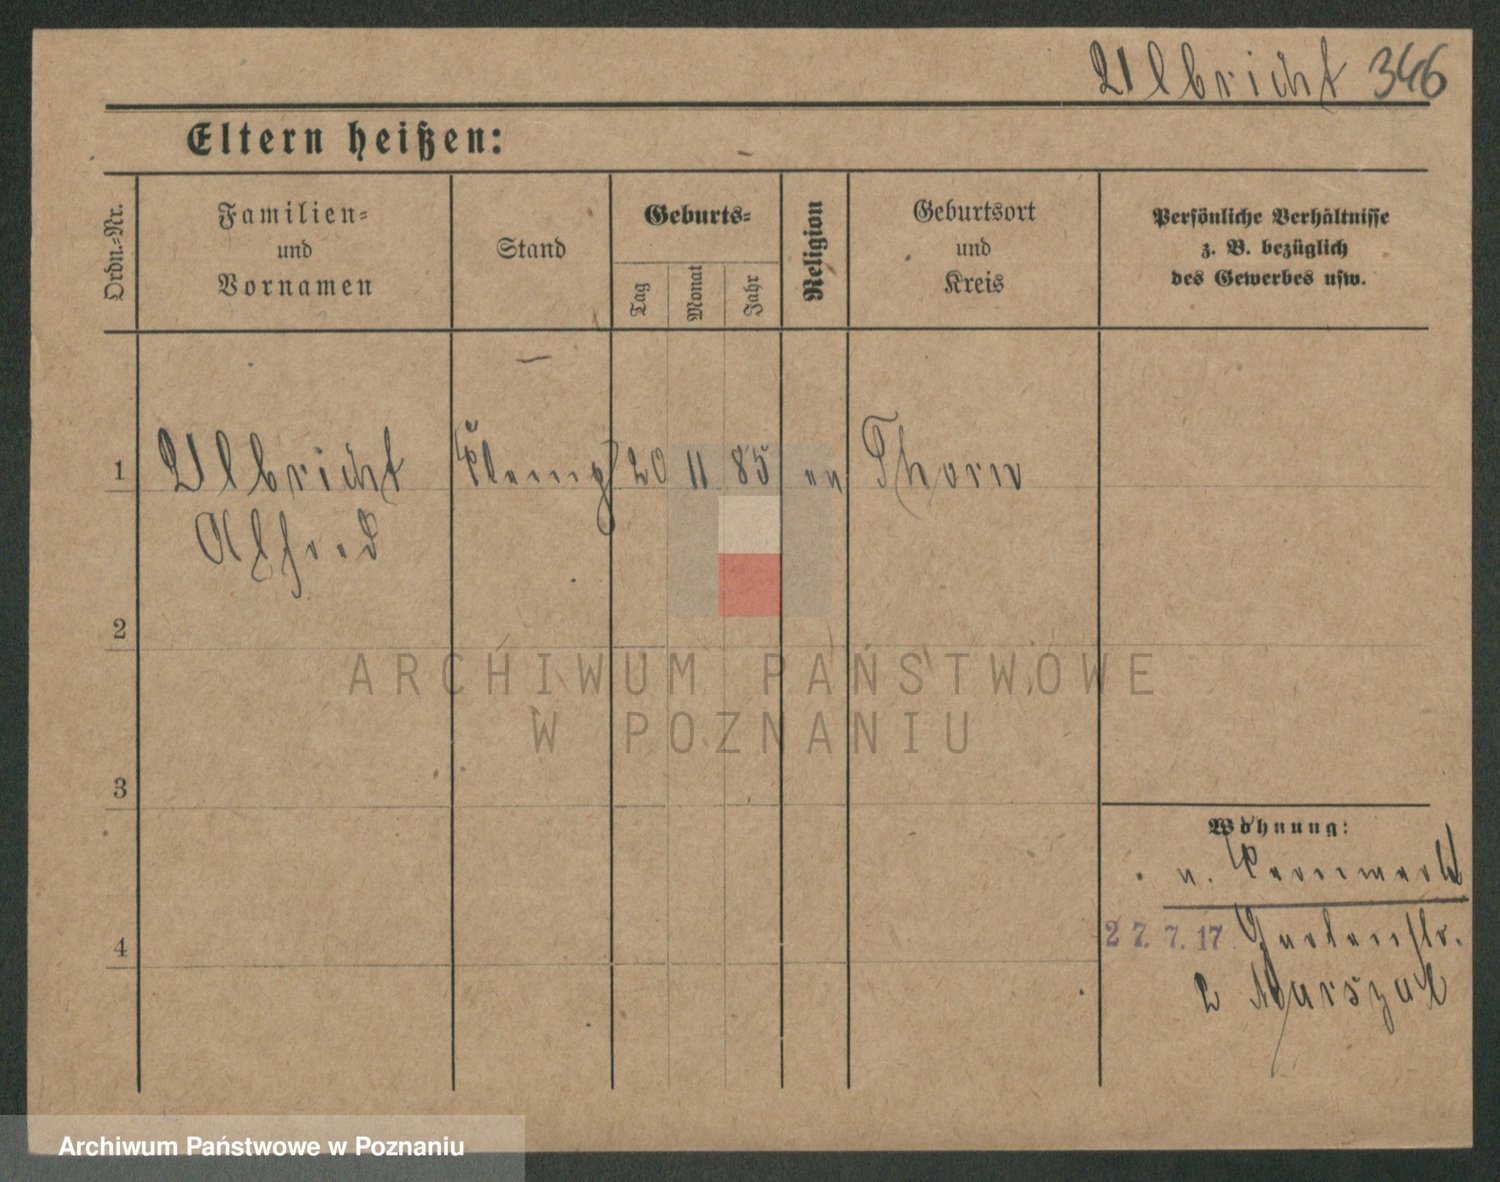 Ulbricht 346
Eltern heißen:
Ordn.=Nr.
Familien=
und
Vornamen
Stand
Geburts=
Tag
Monat
Jahr
Religion
Geburtsort
und
Kreis
Persönliche Verhältnisse
z. B. bezüglich
des Gewerbes usw.
1 Ulbricht 20 11 85 ev Thorn
Alfred
2
3
4
Wohnung:
27. 7. 17. Gartenstr.
2 Marszal
ARCHIWUM PAŃSTWOWE
W POZNANIU
Archiwum Państwowe w Poznaniu